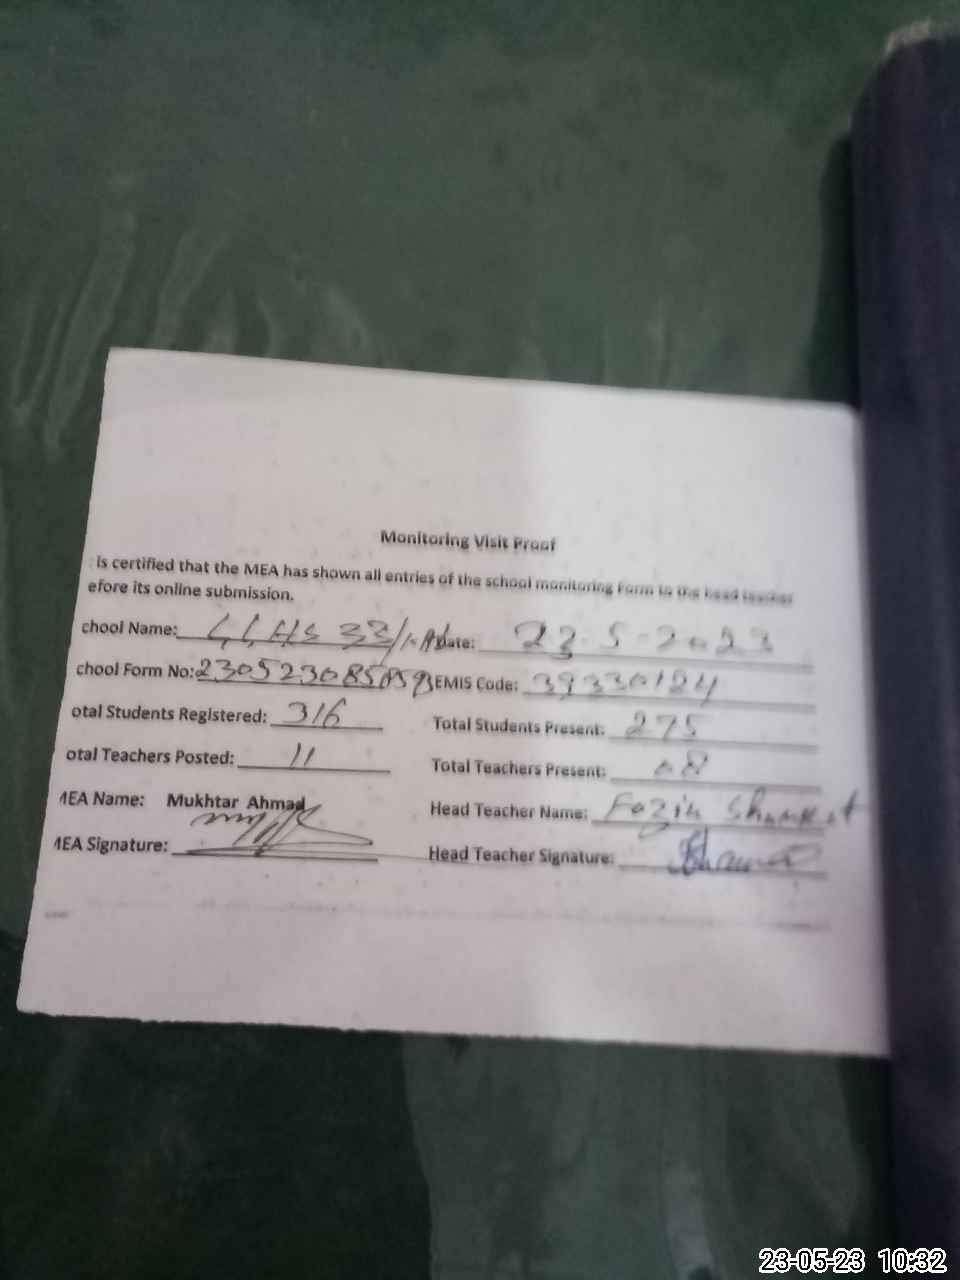 Monitoring Visit Proof
is certified that the MEA has shown all entries of the school monitoring Form to the head teacher
efore its online submission.
chool Name: 33/ Date: 23-5-2023
chool Form No: EMIS Code: 39330124
otal Students Registered: 316 Total Students Present: 275
otal Teachers Posted: 11 Total Teachers Present: 08
MEA Name: Mukhtar Ahmad Head Teacher Name: Fozia Shaukat
MEA Signature: Head Teacher Signature:
23-05-23 10:32